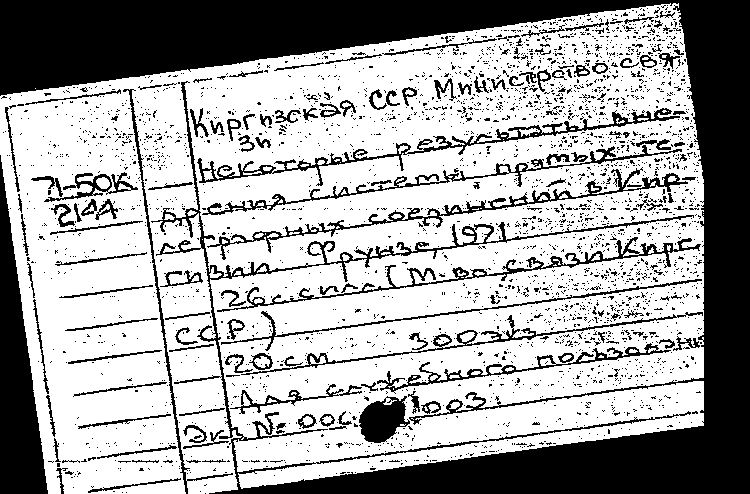 Киргизская ССР Министрство свя-
зи
Некоторые результаты вне-
71-50К
2144
дрения системы прямых те-
леграфных соединений в Кир-
гизии Фрунзе, 1971
26 с. с илл. (М-во связи Кирг
ССР)
20 см 300 экз.
Для служебного пользования
Экз № 006, 003